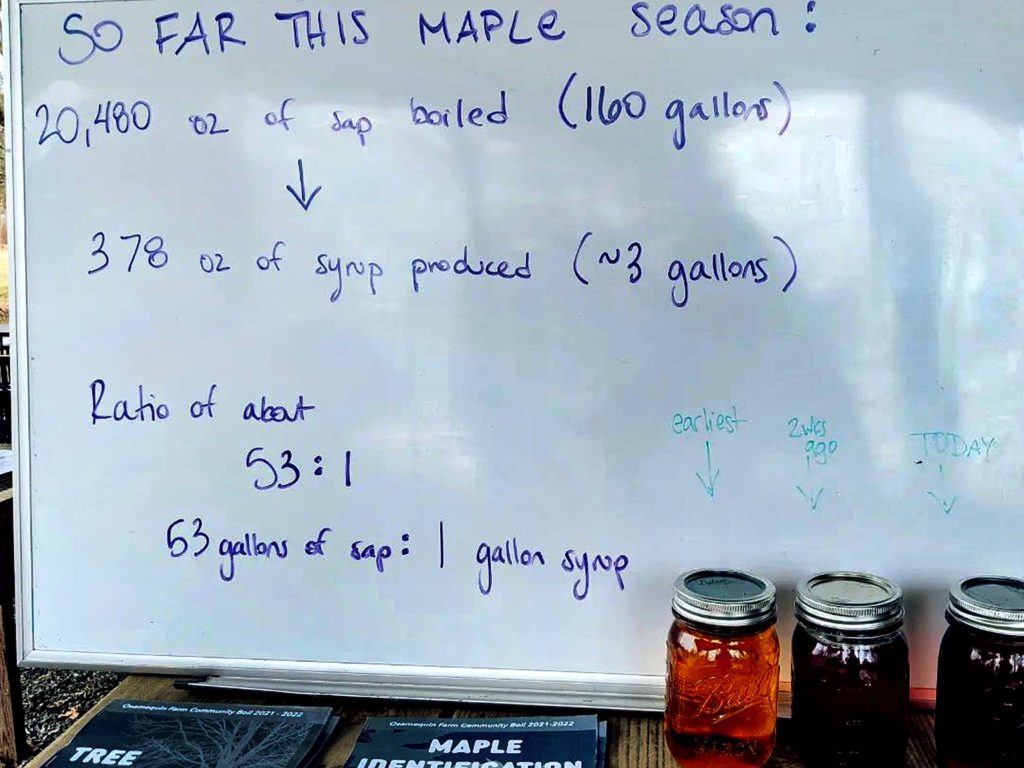 SO FAR THIS MAPLE season:
20,480 oz of sap boiled (160 gallons)
↓
378 oz of syrup produced (~3 gallons)
Ratio of about
53:1
53 gallons of sap: 1 gallon syrup
earliest
2 wks
ago
TODAY
Ball
MASON
Osamequin Farm Community Boil 2021 - 2022
TREE
Osamequin Farm Community Boil 2021-2022
MAPLE
IDENTIFICATION